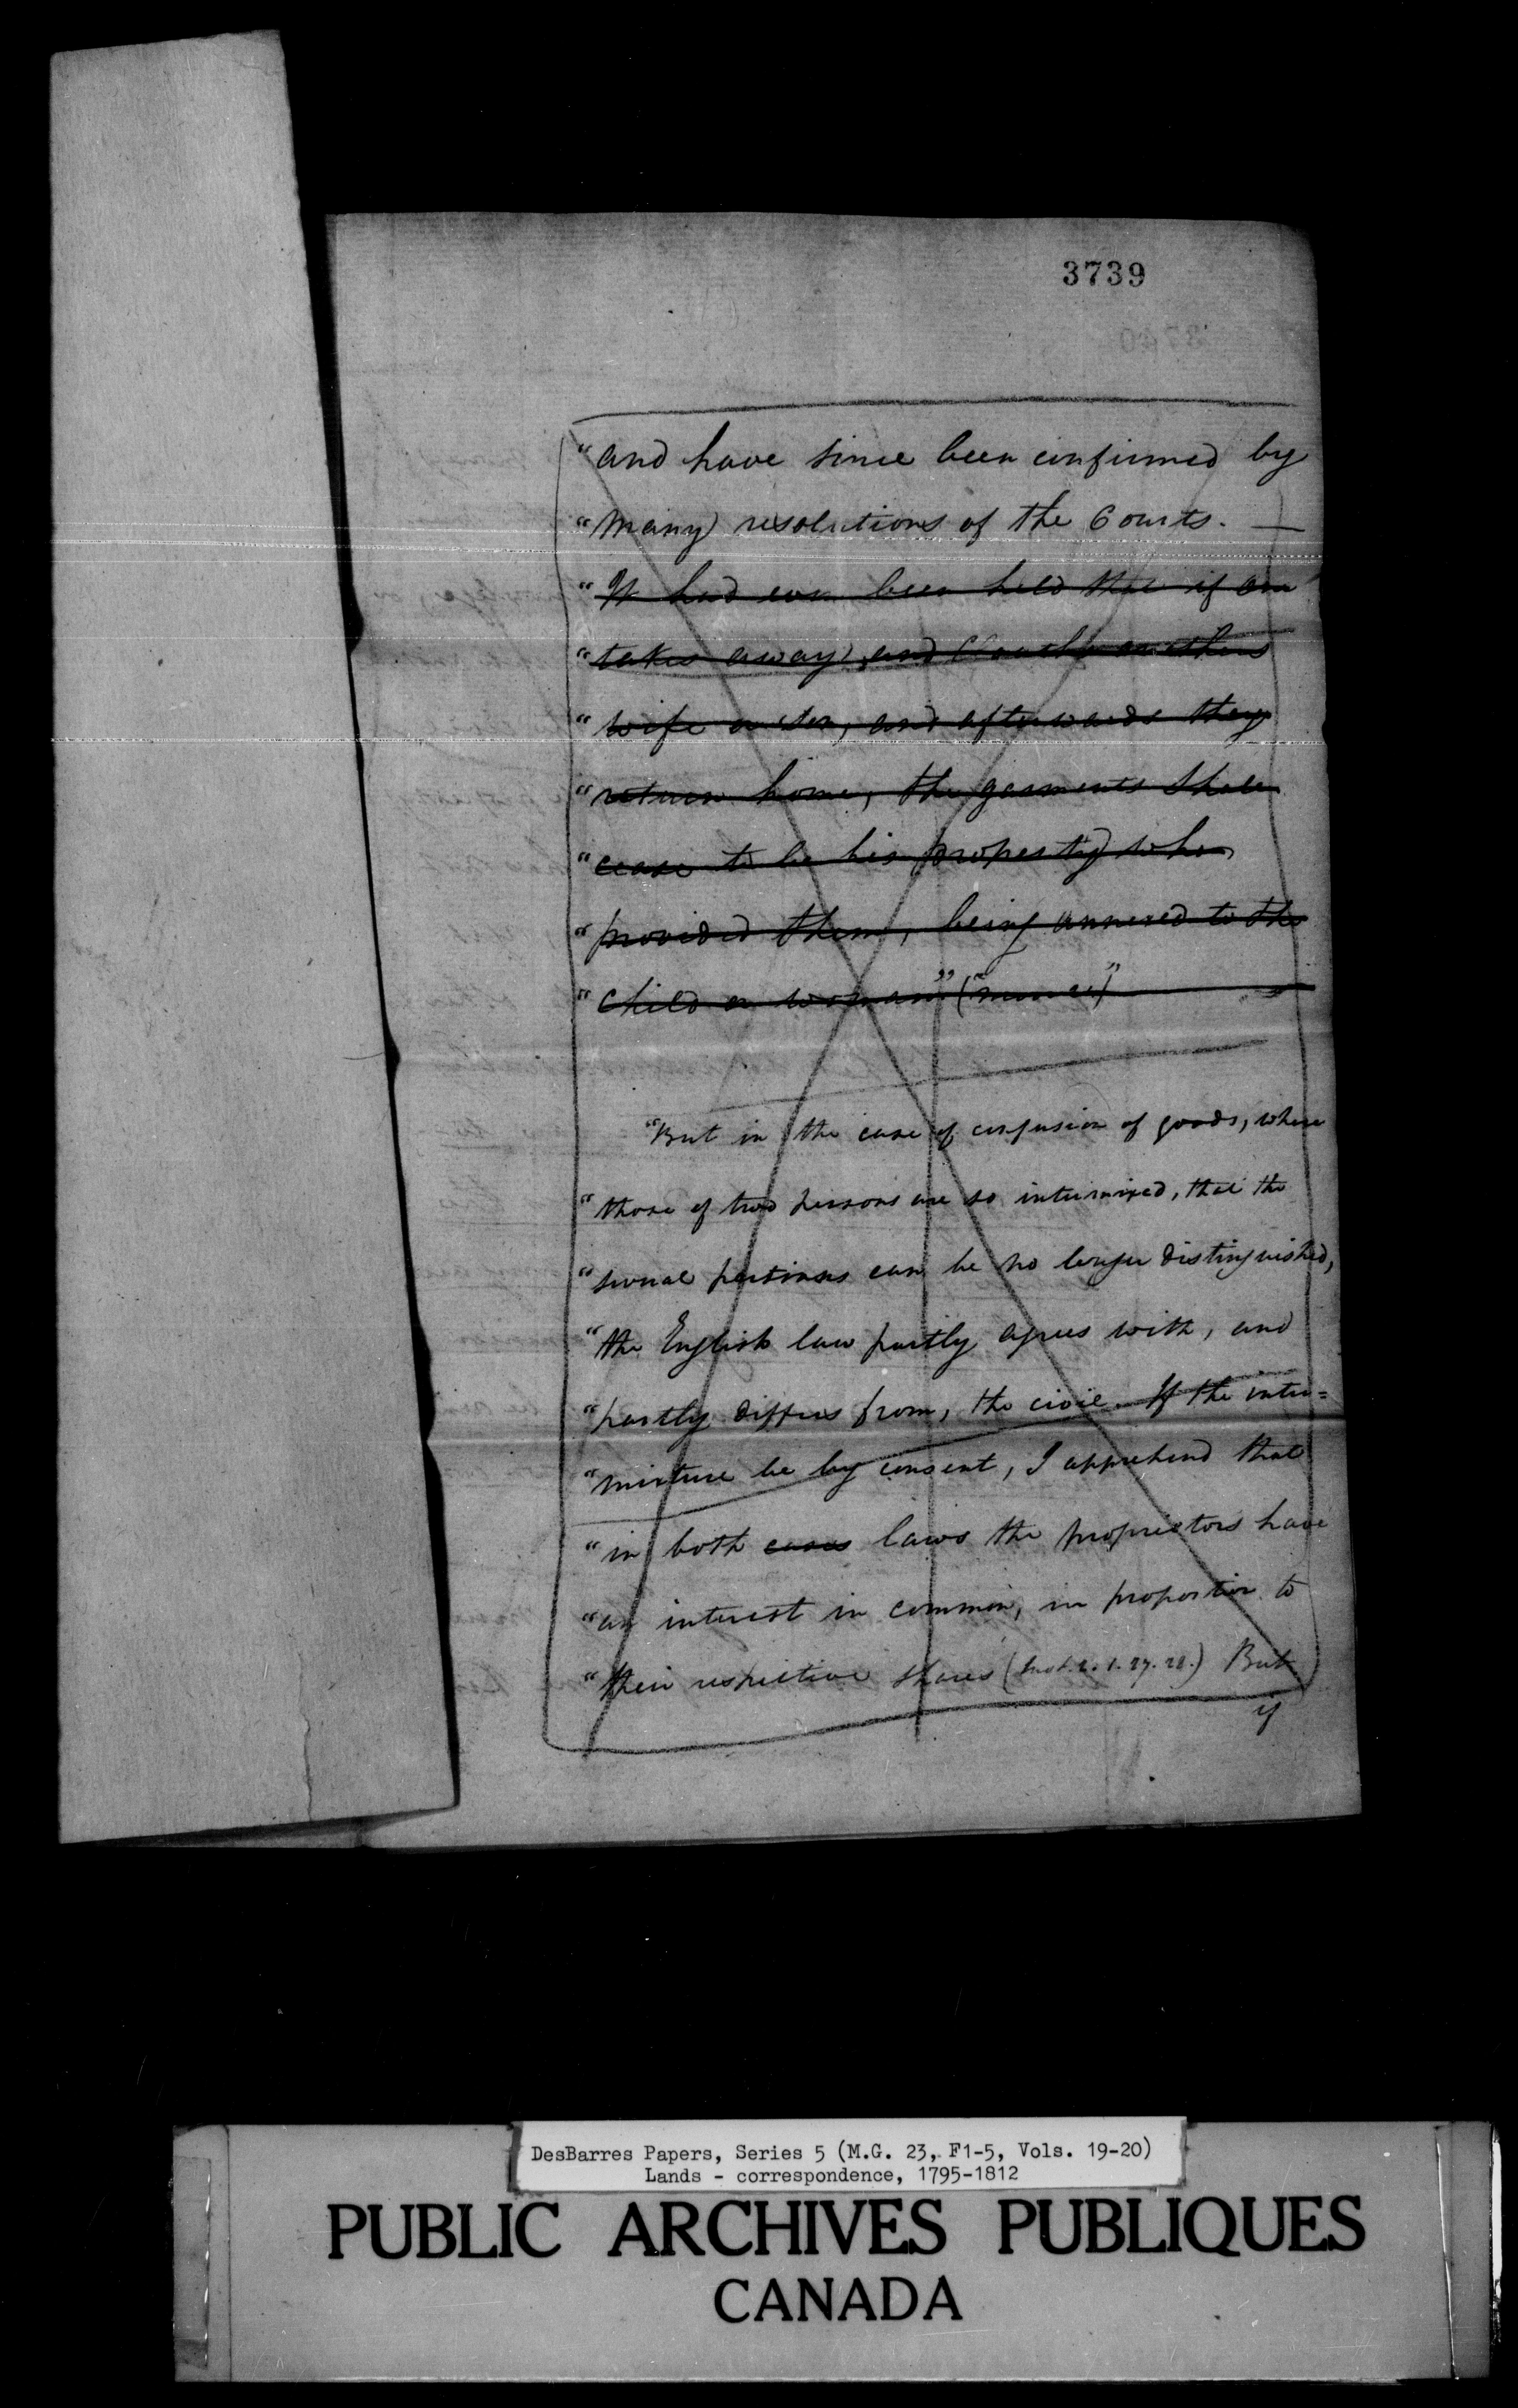 3739
"and have since been confirmed by
"many resolutions of the Courts. —
"It had even been held that if one
"takes away and Cloaths anothers
"wife or son, and afterwards they
"return home, the garments shall
"cease to be his property who
"provided them, being annexed to the
"child or woman" (
"But in the case of confusion of goods, where
"those of two persons are so intermixed, that the
"several portions can be no longer distinguished,
"the English law partly agrees with, and
"partly differs from, the civil. If the inter=
"mixture be by consent, I apprehend that
"in both cases laws the proprietors have
"an interest in common, in proportion to
"their respective shares (Inst. 2. 1. 27. 28.) But
if
DesBarres Papers, Series 5 (M.G. 23, F1-5, Vols. 19-20)
Lands - correspondence, 1795-1812
PUBLIC ARCHIVES PUBLIQUES
CANADA